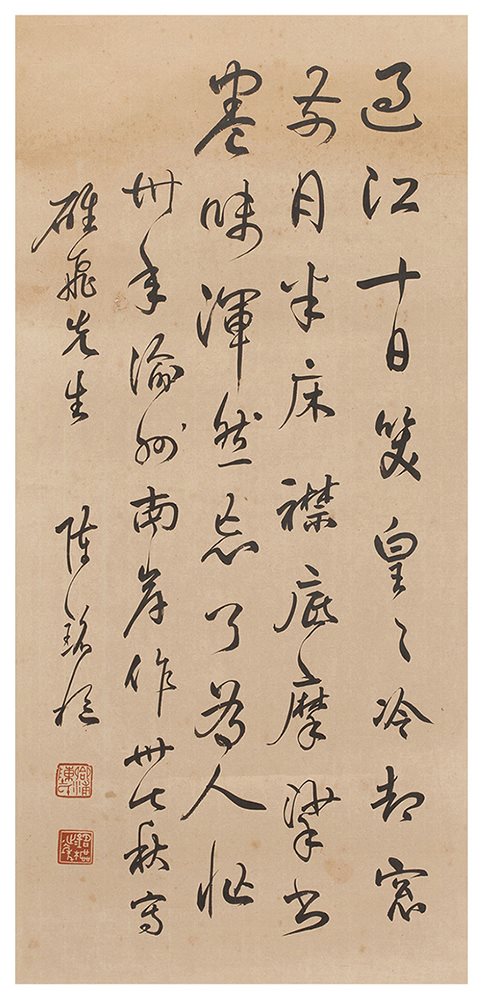 過江十日笑皇〻冷却窗
前月半床襟底摩挲書
卷味渾然忘了為人忙
卅年渝州南岸作卅七秋寫
雄飛先生 陳銘樞